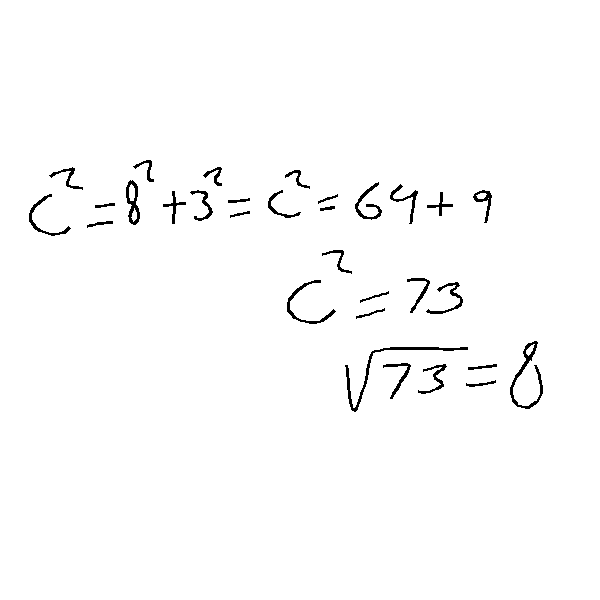 c² = 8² + 3² = c² = 64 + 9
c² = 73
√73 = 8